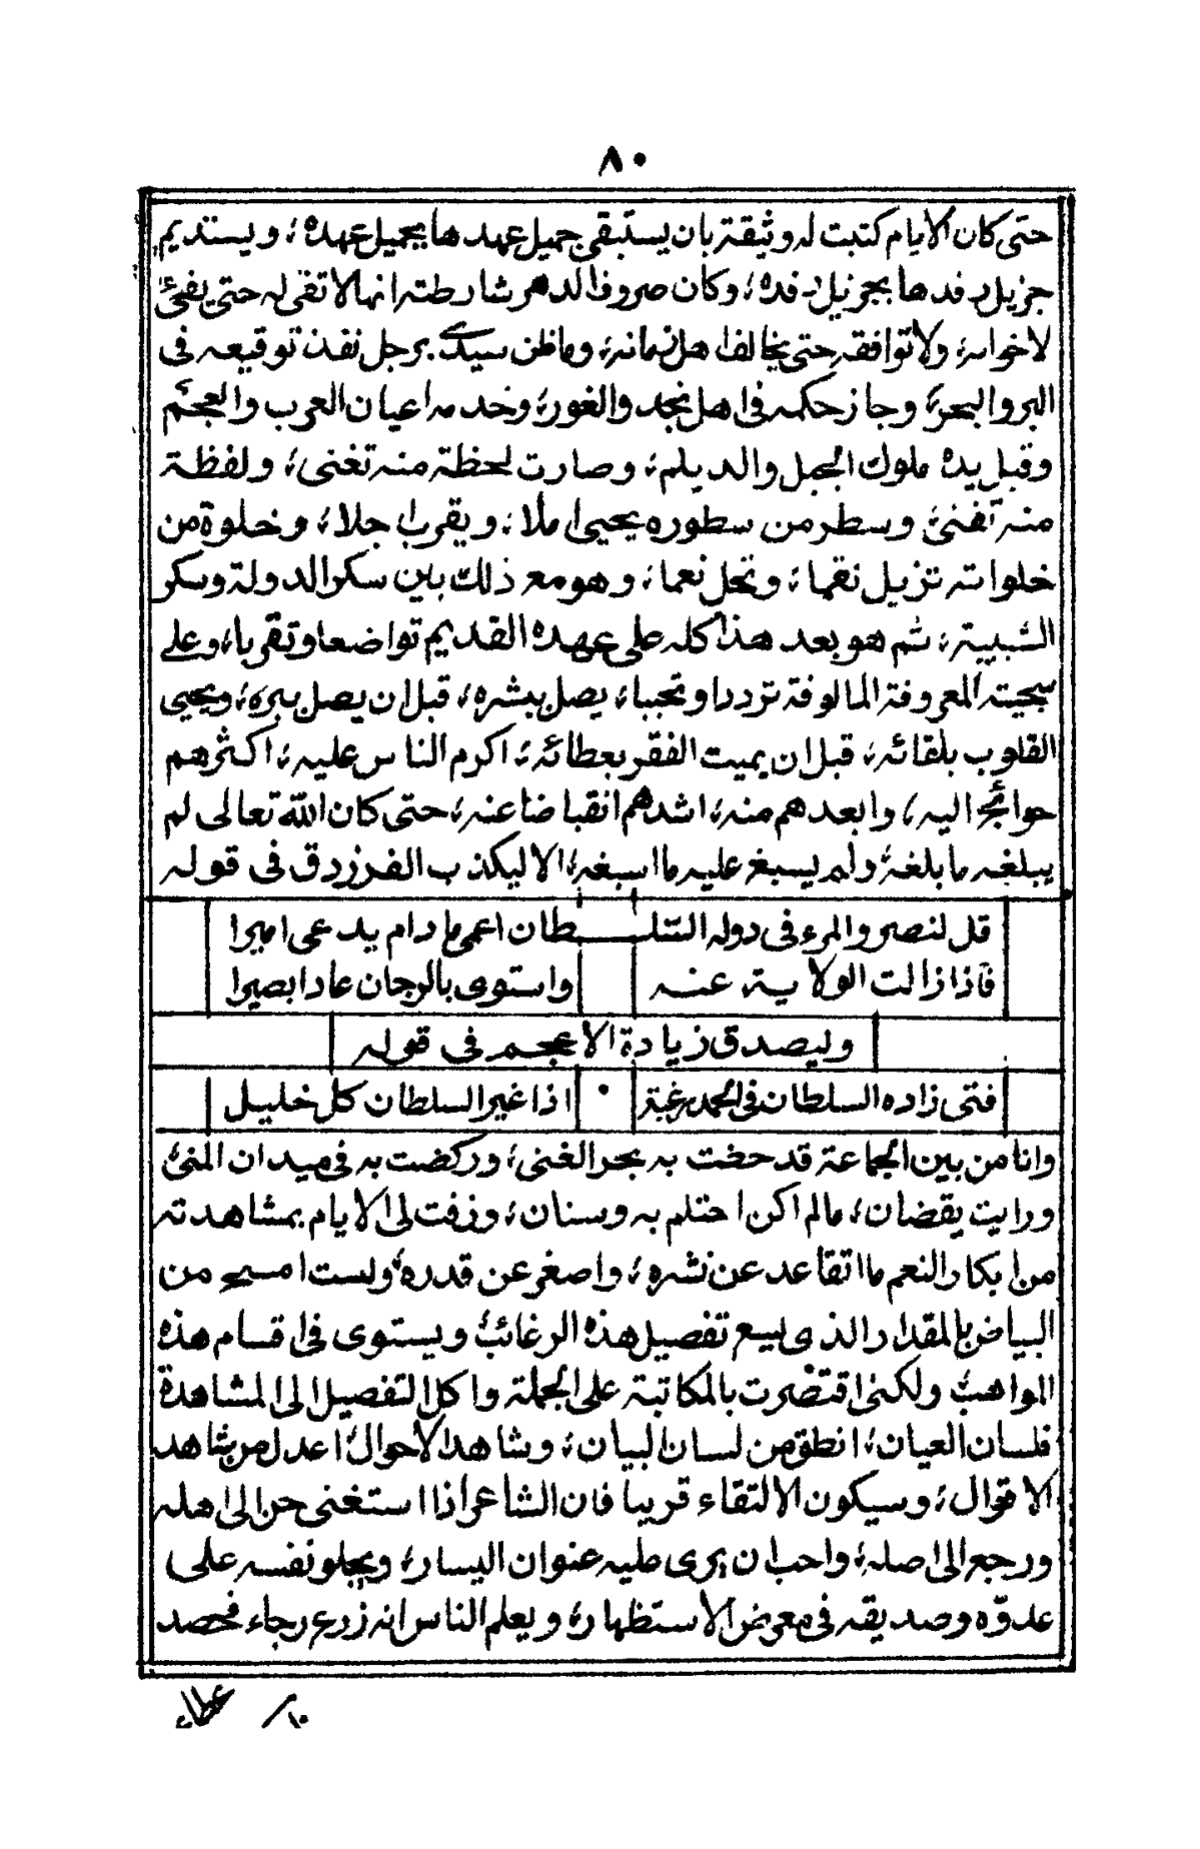 ٨٠
حتى كان الايام كتبت له وثيقة بان يستبقى جميل عهدها بجميل عهده، ويستديم
جزيل رفدها بجزيل رفده، وكان صروف الدهر شارطته انها لا تفى له حتى يفئ
لاخوانه، ولا توافقه حتى يخالف اهل زمانه، وما ظن سيدى برجل نفذت توقيعه فى
البر والبحر، وجاز حكمه فى اهل نجد والغور، وخدمه اعيان العرب والعجم
وقبل يده ملوك الجبل والديلم، وصارت لحظة منه تغنى، ولفظة
منه تفنئ، وسطر من سطوره يحيى املا، ويقرب اجلا، وخلوة من
خلواته تزيل نقما، وتحل نعما، وهو مع ذلك بين سكر الدولة وسكر
الشبيبة، ثم هو بعد هذا كله على عهده القديم تواضعا وتقربا، وعلى
سجيته المعروفة المالوفة توددا وتحببا، يصل ببشره، قبل ان يصل ببره، ويحيى
القلوب بلقائه، قبل ان يميت الفقر بعطائه، اكرم الناس عليه، اكثرهم
حوائج اليه، وابعدهم منه، اشدهم انقباضا عنه، حتى كان الله تعالى لم
يبلغه ما بلغه، ولم يسبغ عليه ما اسبغه، الا ليكذب الفرزدق فى قوله
قل لنصر والمرء فى دولة السلـ ـطان اعمى ما دام يدعى اميرا
فاذا زالت الولاية عنه واستوى بالرجال عاد بصيرا
وليصدق زيادة الاعجم فى قوله
فتى زاده السلطان فى الحمد رغبة • اذا غير السلطان كل خليل
وانا من بين الجماعة قد حضت به بحر الغنى، وركضت به فى ميدان المنئ
ورايت يقضان، ما لم اكن احتلم به وسنان، وزفت لى الايام بمشاهدته
من ابكار النعم ما اتقاعد عن نشره، واصغر عن قدره، ولست امسح من
البياض بالمقدار الذى يسع تفصيل هذه الرغائب، ويستوى فى اقسام هذه
المواهب، ولكنى اقتصرت بالمكاتبة على الجملة واكل التفصيل الى المشاهدة
فلسان العيان، انطق من لسان البيان، وشاهد الاحوال، اعدل من شاهد
الاقوال، وسيكون الالتقاء قريبا فان الشاعر اذا استغنى حن الى اهله
ورجع الى اصله، واحب ان يرى عليه عنوان اليسار، ويجلو نفسه على
عدوّه وصديقه فى معرض الاستظهار، ويعلم الناس انه زرع رجاء فحصد